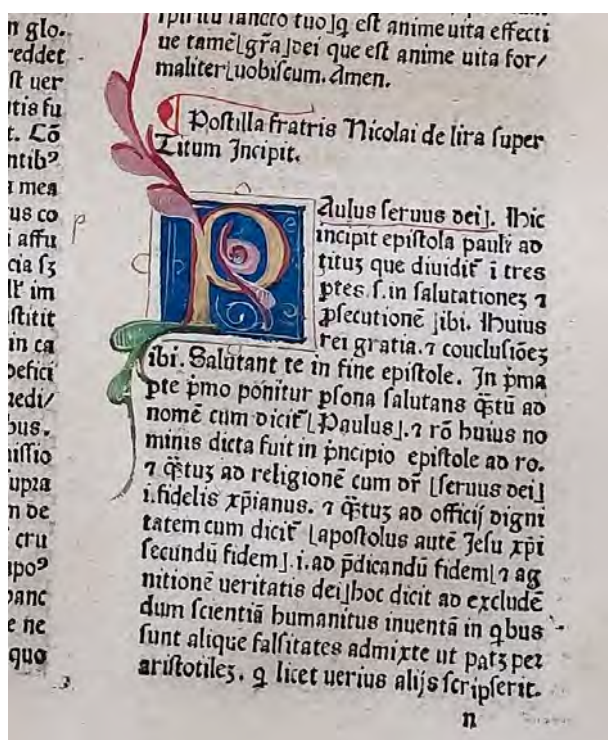 n glo.
reddet
st uer
tis fu
t. Cō
ntibꝰ
mea
us co
i affu
cia sꝫ
im
stitit
in ca
befici
redi/
bus.
nissio
upra
m de
cru
upoꝰ
banc
e ne
quo
spiritu sancto tuo⌋q est anime uita effecti
ue tamē⌊gr̄a⌋dei que est anime uita for/
maliter⌊uobiscum. Amen.
Postilla fratris Nicolai de lira super
Titum Incipit.
PAulus seruus dei⌋. Hic
incipit epistola pauli ad
tituꝫ que diuidit̄ ī tres
ptes.s. in salutationeꝫ ⁊
ꝓsecutionē ⌋ibi. Huius
rei gratia. ⁊ couclusiōeꝫ
ibi. Salutant te in fine epistole. In p̄ma
pte p̄mo ponitur ꝑsona salutans q̄ꝫtū ad
nomē cum dicit̄⌊Paulus⌋. ⁊ rō huius no
minis dicta fuit in p̄ncipio epistole ad ro.
⁊ q̄ꝫtuꝫ ad religionē cum dr̄ ⌊seruus dei⌋
i. fidelis xp̄ianus. ⁊ q̄ꝫtuꝫ ad officij digni
tatem cum dicit̄ ⌊apostolus autē Jesu xp̄i
secundū fidem⌋.i. ad p̄dicandū fidem⌊⁊ ag
nitionē ueritatis dei⌋hoc dicit ad excludē
dum scientiā humanitus inuentā in qbus
sunt alique falsitates admixte ut patꝫ per
aristotileꝫ. q licet uerius alijs scripserit.
n
p